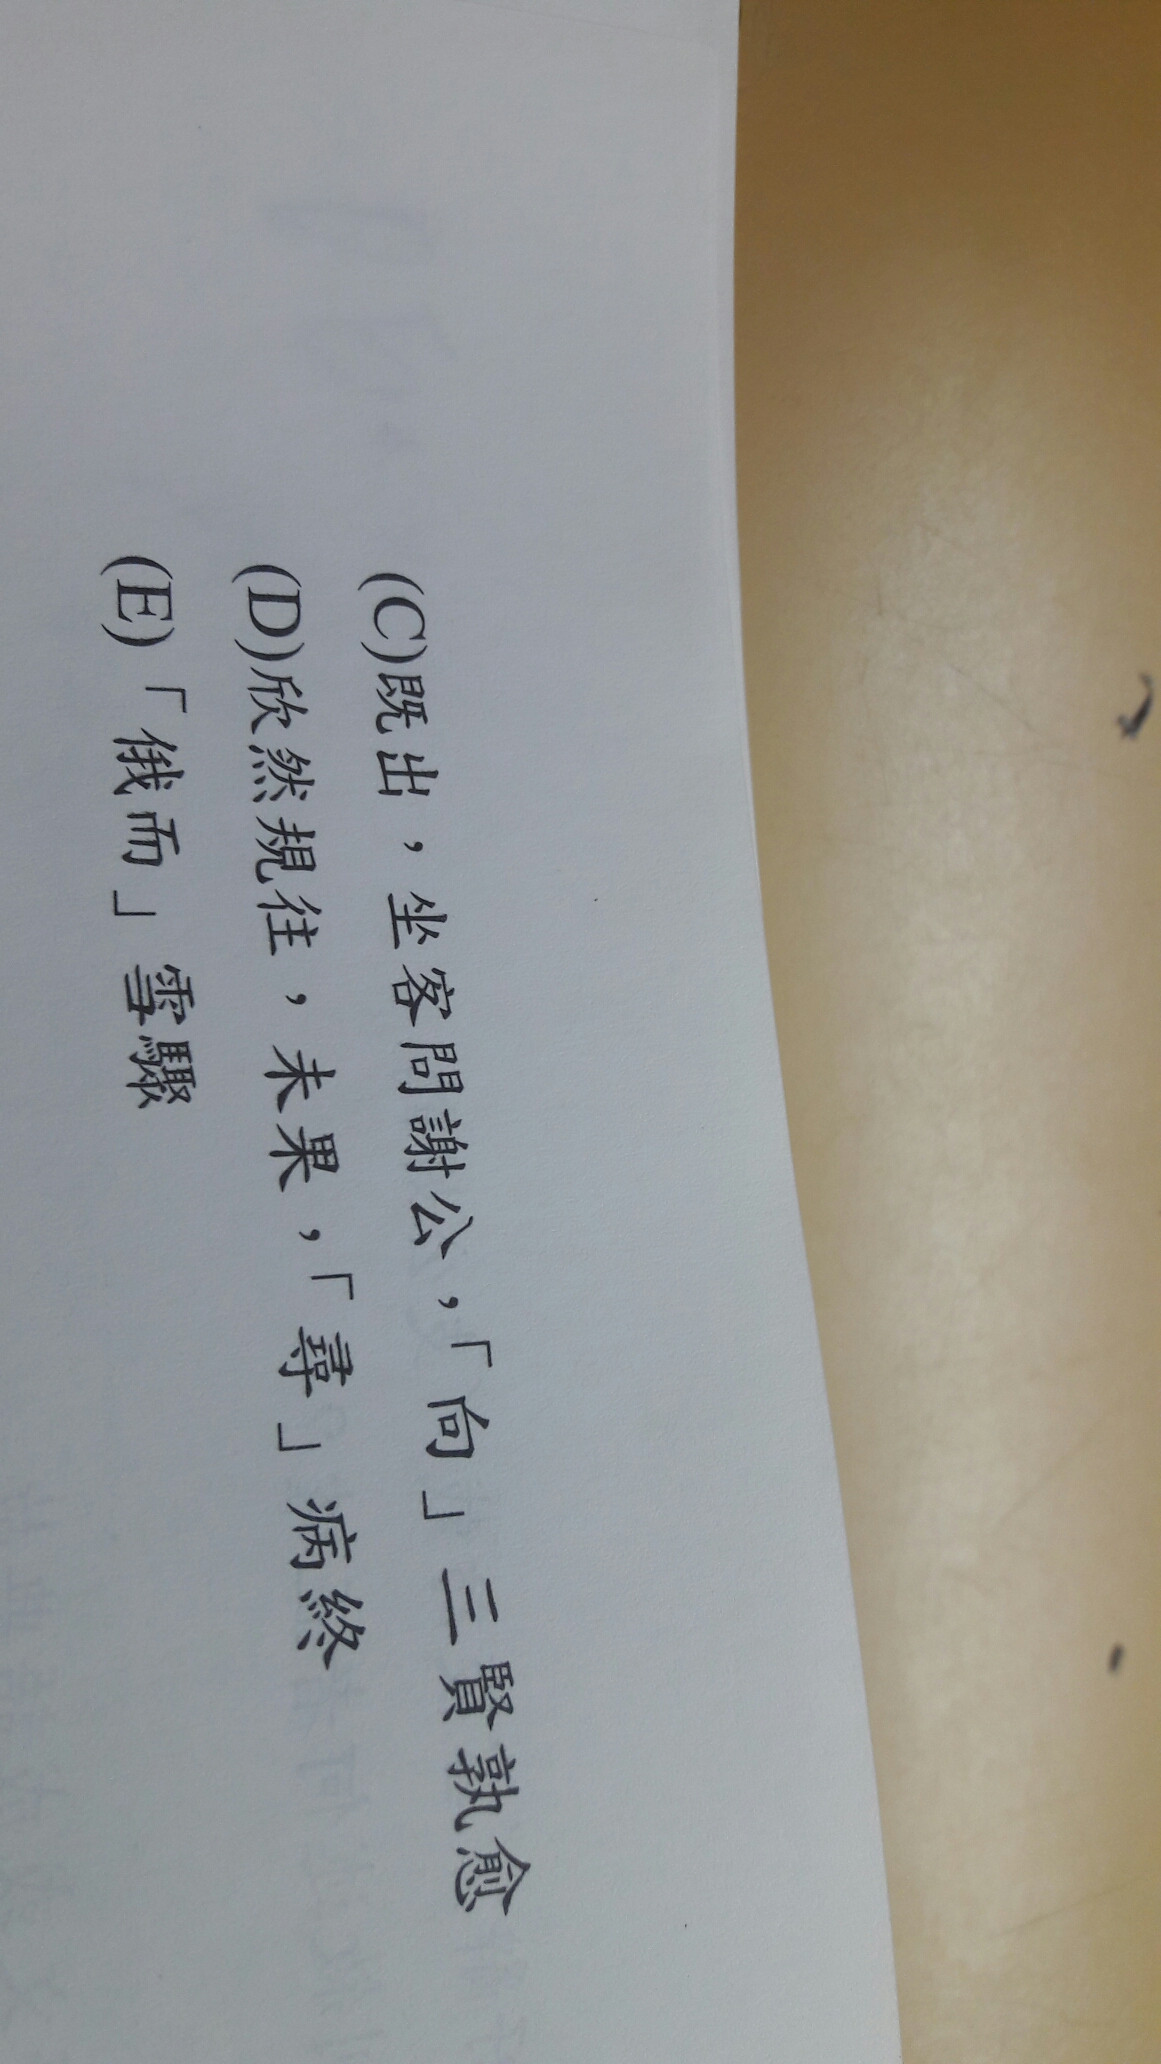 (C)既出，坐客問謝公，「向」三賢孰愈
(D)欣然規往，未果，「尋」病終
(E)「俄而」雪驟